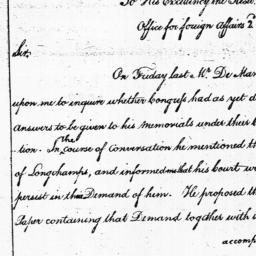 To His Excellency the Presi
Office for foreign Affairs 2
Sir,
On Friday last Mr. De Mar
upon me to inquire whether Congress had as yet d
Answers to be given to his memorials under their
tion. In the course of Conversation he mentioned th
of Longchamps, and informed me that his Court w
persist in their Demand of him. He proposed th
Paper containing that Demand together with
accomp